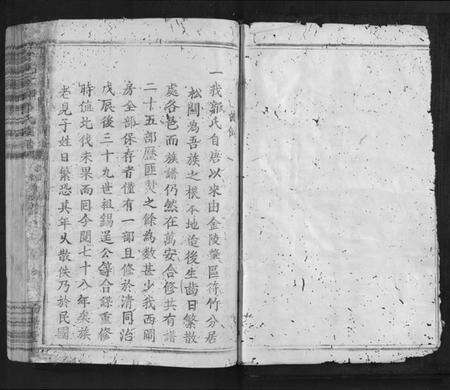 一我郭氏自唐以來由金陵箕區筠竹分居
松閣為吾族之根本地迨後生齒日繁散
處各邑而族譜仍然在萬安合修共有譜
二十五部歷匪燹之餘為數甚少我西岡
房全部保存者僅有一部且修於清同治
戊辰後三十九世祖錫公等合錄重修
時值北伐未果而同今閱七十八年矣族
老見子姓日繁恐其年久散佚乃於民國